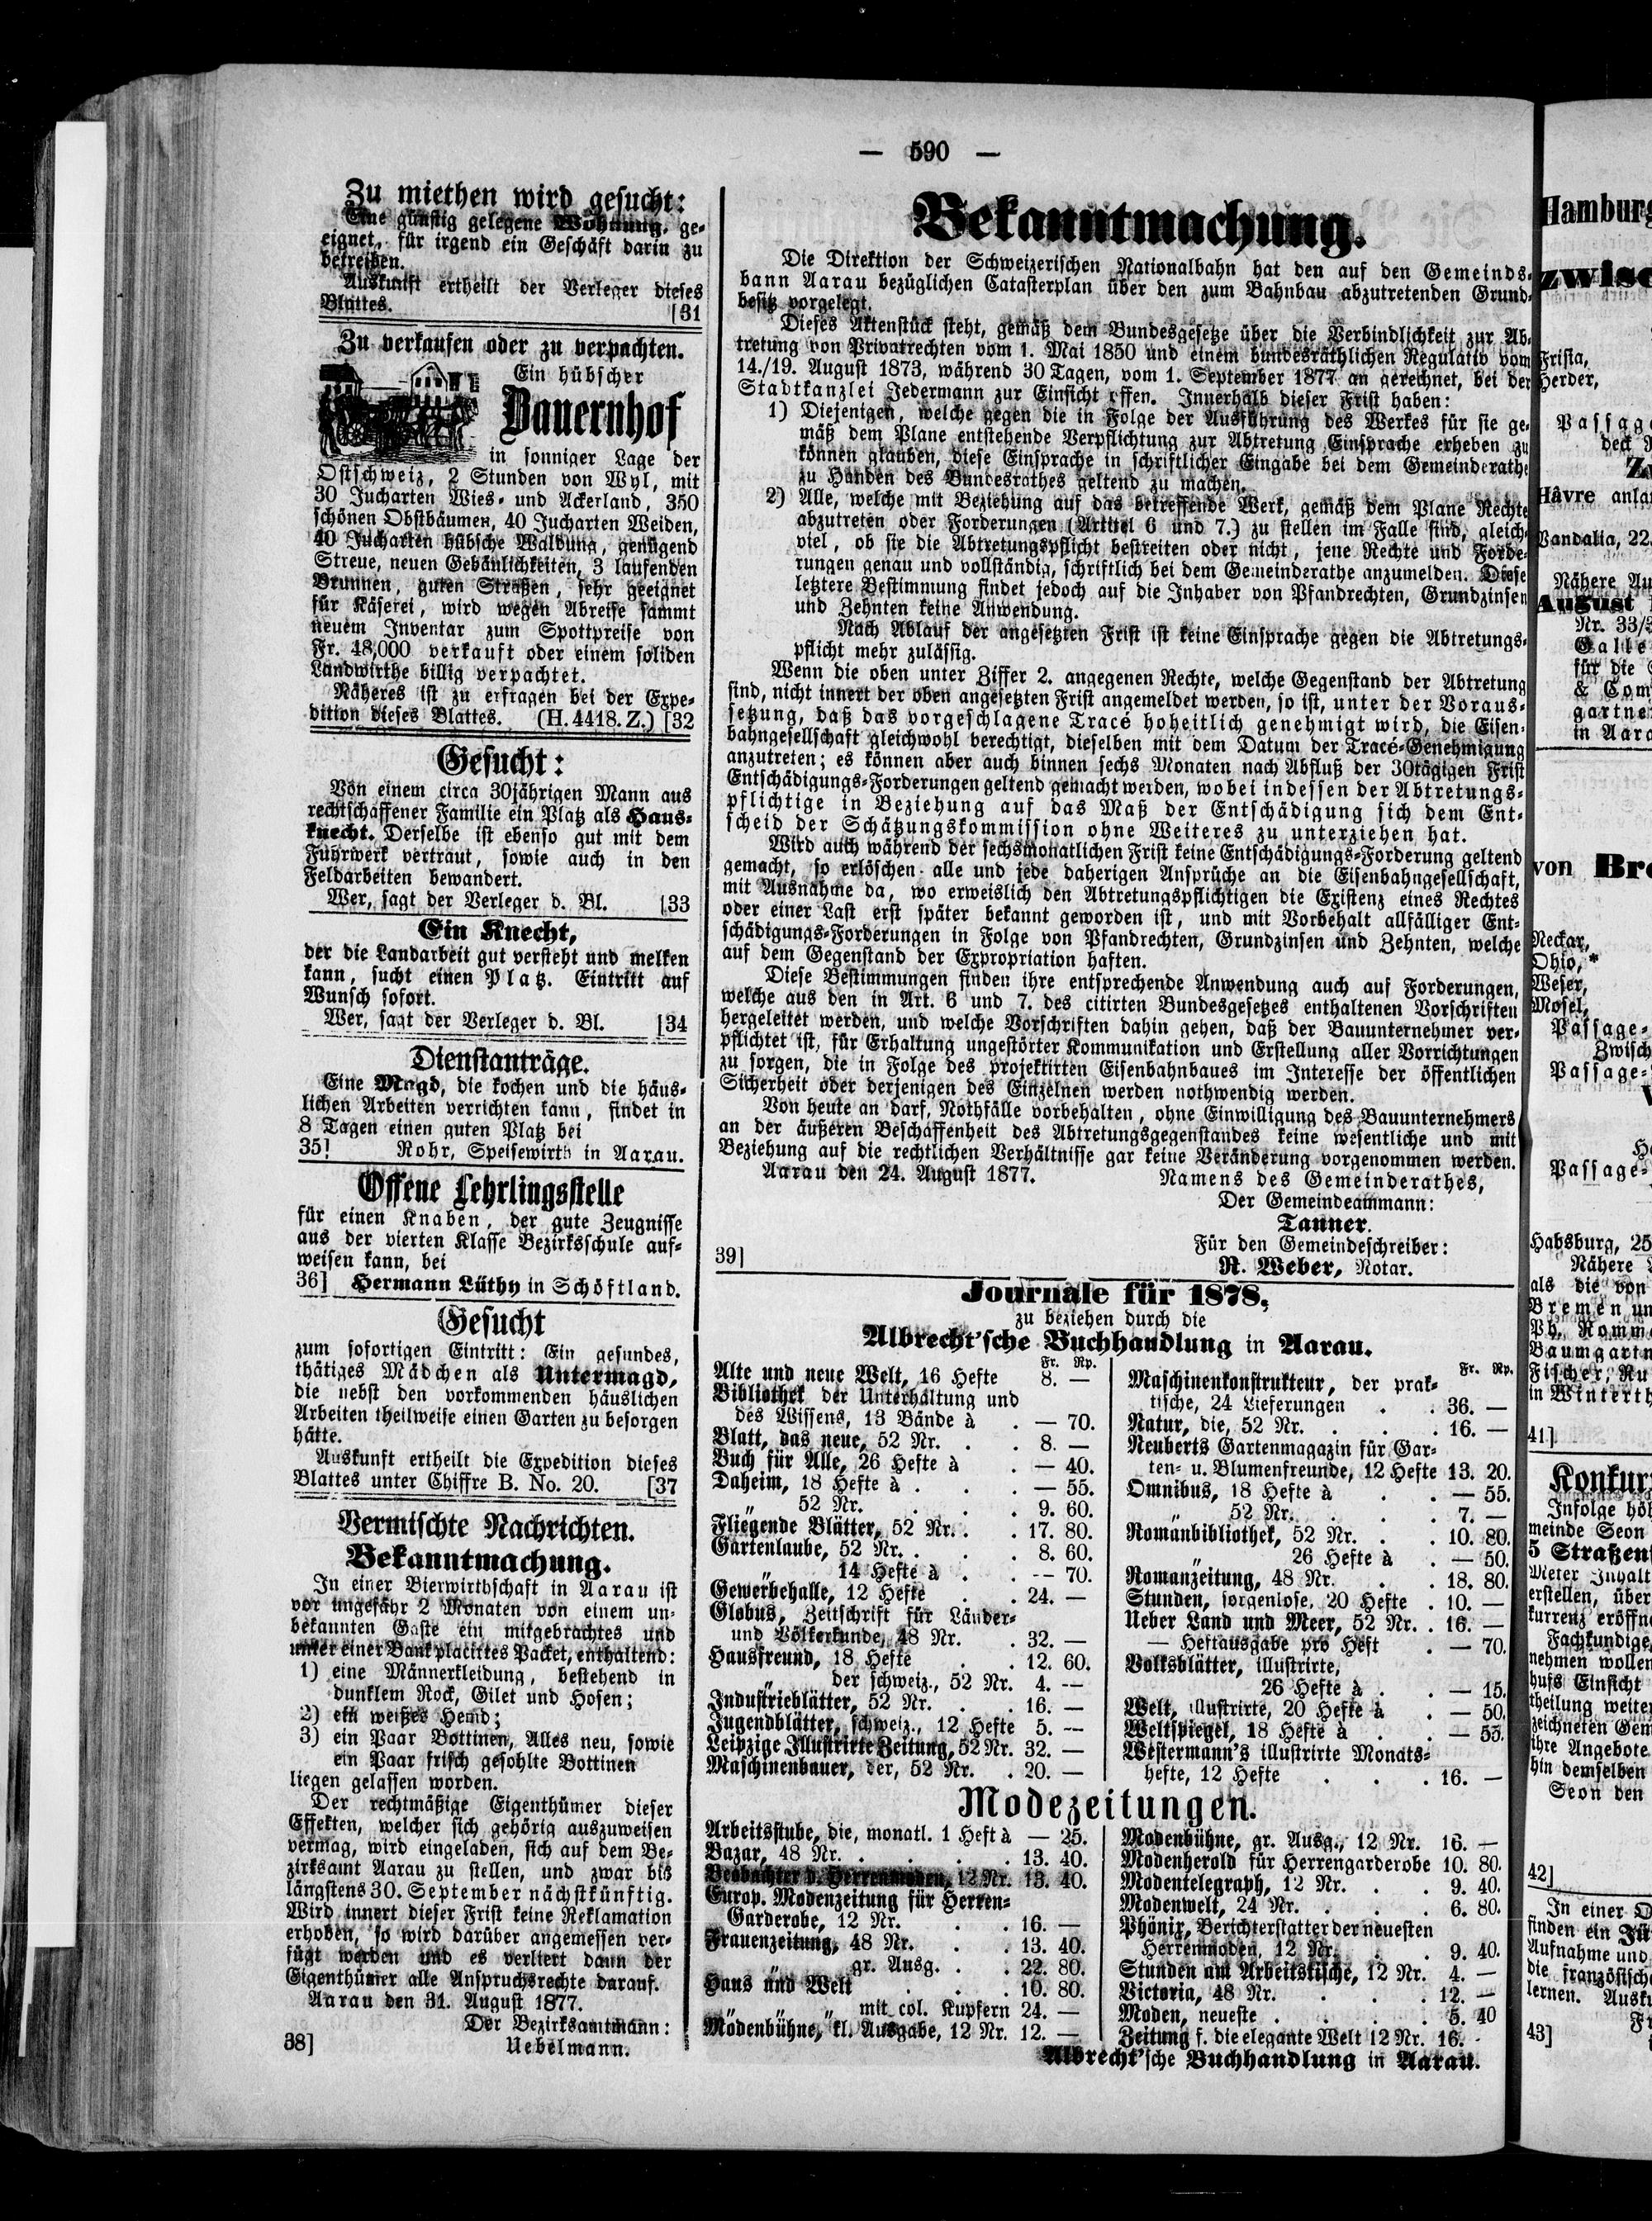 — 590 —
Zu miethen wird gesucht:
Eine günstig gelegene Wohnung, ge-
eignet, für irgend ein Geschäft darin zu
betreiben.
Auskunft ertheilt der Verleger dieses
Blattes. [31
Zu verkaufen oder zu verpachten.
Ein hübscher
Bauernhof
in sonniger Lage der
Ostschweiz, 2 Stunden von Wyl, mit
30 Jucharten Wies- und Ackerland, 350
schönen Obstbäumen, 40 Jucharten Weiden,
40 Jucharten hübsche Waldung, genügend
Streue, neuen Gebäulichkeiten, 3 laufenden
Brunnen, guten Straßen, sehr geeignet
für Käserei, wird wegen Abreise sammt
neuem Inventar zum Spottpreise von
Fr. 48,000 verkauft oder einem soliden
Landwirthe billig verpachtet.
Näheres ist zu erfragen bei der Expe-
dition dieses Blattes. (H. 4418. Z.) [32
Gesucht:
Von einem circa 30jährigen Mann aus
rechtschaffener Familie ein Platz als Haus-
knecht. Derselbe ist ebenso gut mit dem
Fuhrwerk vertraut, sowie auch in den
Feldarbeiten bewandert.
Wer, sagt der Verleger d. Bl. [33
Ein Knecht,
der die Landarbeit gut versteht und melken
kann, sucht einen Platz. Eintritt auf
Wunsch sofort.
Wer, sagt der Verleger d. Bl. [34
Dienstanträge.
Eine Magd, die kochen und die häus-
lichen Arbeiten verrichten kann, findet in
8 Tagen einen guten Platz bei
35] Rohr, Speisewirth in Aarau.
Offene Lehrlingsstelle
für einen Knaben, der gute Zeugnisse
aus der vierten Klasse Bezirksschule auf-
weisen kann, bei
36] Hermann Lüthy in Schöftland.
Gesucht
zum sofortigen Eintritt: Ein gesundes,
thätiges Mädchen als Untermagd,
die nebst den vorkommenden häuslichen
Arbeiten theilweise einen Garten zu besorgen
hätte.
Auskunft ertheilt die Expedition dieses
Blattes unter Chiffre B. No. 20. [37
Vermischte Nachrichten.
Bekanntmachung.
In einer Bierwirthschaft in Aarau ist
vor ungefähr 2 Monaten von einem un-
bekannten Gaste ein mitgebrachtes und
unter einer Bank placirtes Packet, enthaltend:
1) eine Männerkleidung, bestehend in
dunklem Rock, Gilet und Hosen;
2) ein weißes Hemd;
3) ein Paar Bottinen, Alles neu, sowie
ein Paar frisch gesohlte Bottinen
liegen gelassen worden.
Der rechtmäßige Eigenthümer dieser
Effekten, welcher sich gehörig auszuweisen
vermag, wird eingeladen, sich auf dem Be-
zirksamt Aarau zu stellen, und zwar bis
längstens 30. September nächstkünftig.
Wird innert dieser Frist keine Reklamation
erhoben, so wird darüber angemessen ver-
fügt werden und es verliert dann der
Eigenthümer alle Anspruchsrechte darauf.
Aarau den 31. August 1877.
Der Bezirksamtmann:
38] Uebelmann.
Bekanntmachung.
Die Direktion der Schweizerischen Nationalbahn hat den auf den Gemeinds-
bann Aarau bezüglichen Catasterplan über den zum Bahnbau abzutretenden Grund-
besitz vorgelegt.
Dieses Aktenstück steht, gemäß dem Bundesgesetze über die Verbindlichkeit zur Ab-
tretung von Privatrechten vom 1. Mai 1850 und einem bundesräthlichen Regulativ vom
14./19. August 1873, während 30 Tagen, vom 1. September 1877 an gerechnet, bei der
Stadtkanzlei Jedermann zur Einsicht offen. Innerhalb dieser Frist haben:
1) Diejenigen, welche gegen die in Folge der Ausführung des Werkes für sie ge-
mäß dem Plane entstehende Verpflichtung zur Abtretung Einsprache erheben zu
können glauben, diese Einsprache in schriftlicher Eingabe bei dem Gemeinderathe
zu Handen des Bundesrathes geltend zu machen.
2) Alle, welche mit Beziehung auf das betreffende Werk, gemäß dem Plane Rechte
abzutreten oder Forderungen (Artikel 6 und 7.) zu stellen im Falle sind, gleich-
viel, ob sie die Abtretungspflicht bestreiten oder nicht, jene Rechte und Forde-
rungen genau und vollständig, schriftlich bei dem Gemeinderathe anzumelden. Diese
letztere Bestimmung findet jedoch auf die Inhaber von Pfandrechten, Grundzinsen
und Zehnten keine Anwendung.
Nach Ablauf der angesetzten Frist ist keine Einsprache gegen die Abtretungs-
pflicht mehr zulässig.
Wenn die oben unter Ziffer 2. angegenen Rechte, welche Gegenstand der Abtretung
sind, nicht innert der oben angesetzten Frist angemeldet werden, so ist, unter der Voraus-
setzung, daß das vorgeschlagene Tracé hoheitlich genehmigt wird, die Eisen-
bahngesellschaft gleichwohl berechtigt, dieselben mit dem Datum der Tracé-Genehmigung
anzutreten; es können aber auch binnen sechs Monaten nach Abfluß der 30tägigen Frist
Entschädigungs-Forderungen geltend gemacht werden, wobei indessen der Abtretungs-
pflichtige in Beziehung auf das Maß der Entschädigung sich dem Ent-
scheid der Schätzungskommission ohne Weiteres zu unterziehen hat.
Wird auch während der sechsmonatlichen Frist keine Entschädigungs-Forderung geltend
gemacht, so erlöschen alle und jede daherigen Ansprüche an die Eisenbahngesellschaft,
mit Ausnahme da, wo erweislich den Abtretungspflichtigen die Existenz eines Rechtes
oder einer Last erst später bekannt geworden ist, und mit Vorbehalt allfälliger Ent-
schädigungs-Forderungen in Folge von Pfandrechten, Grundzinsen und Zehnten, welche
auf dem Gegenstand der Expropriation haften.
Diese Bestimmungen finden ihre entsprechende Anwendung auch auf Forderungen,
welche aus den in Art. 6 und 7. des citirten Bundesgesetzes enthaltenen Vorschriften
hergeleitet werden, und welche Vorschriften dahin gehen, daß der Bauunternehmer ver-
pflichtet ist, für Erhaltung ungestörter Kommunikation und Erstellung aller Vorrichtungen
zu sorgen, die in Folge des projektirten Eisenbahnbaues im Interesse der öffentlichen
Sicherheit oder derjenigen des Einzelnen werden nothwendig werden.
Von heute an darf, Nothfälle vorbehalten, ohne Einwilligung des Bauunternehmers
an der äußeren Beschaffenheit des Abtretungsgegenstandes keine wesentliche und mit
Beziehung auf die rechtlichen Verhältnisse gar keine Veränderung vorgenommen werden.
Aarau den 24. August 1877. Namens des Gemeinderathes,
Der Gemeindeammann:
Tanner.
Für den Gemeindeschreiber:
39] R. Weber, Notar.
Journale für 1878,
zu beziehen durch die
Albrecht'sche Buchhandlung in Aarau.
Fr. Rp.
Alte und neue Welt, 16 Hefte 8. —
Bibliothek der Unterhaltung und
des Wissens, 13 Bände à . — 70.
Blatt, das neue, 52 Nr. . . 8. —
Buch für Alle, 26 Hefte à . — 40.
Daheim, 18 Hefte à . . . — 55.
„ 52 Nr. . . . 9. 60.
Fliegende Blätter, 52 Nr. . . 17. 80.
Gartenlaube, 52 Nr. . . . 8. 60.
„ 14 Hefte à . . — 70.
Gewerbehalle, 12 Hefte . . 24. —
Globus, Zeitschrift für Länder-
und Völkerkunde, 48 Nr. . 32. —
Hausfreund, 18 Hefte . . 12. 60.
„ der schweiz., 52 Nr. 4. —
Industrieblätter, 52 Nr. . . 16. —
Jugendblätter, schweiz., 12 Hefte 5. —
Leipzige Illustrirte Zeitung, 52 Nr. 32. —
Maschinenbauer, der, 52 Nr. . 20. —
Fr. Rp.
Maschinenkonstrukteur, der prak-
tische, 24 Lieferungen . . 36. —
Natur, die, 52 Nr. . . . 16. —
Neuberts Gartenmagazin für Gar-
ten- u. Blumenfreunde, 12 Hefte 13. 20.
Omnibus, 18 Hefte à . . — 55.
„ 52 Nr. . . . 7. —
Romanbibliothek, 52 Nr. . . 10. 80.
„ 26 Hefte à . — 50.
Romanzeitung, 48 Nr. . . 18. 80.
Stunden, sorgenlose, 20 Hefte . 10. —
Ueber Land und Meer, 52 Nr. . 16. —
— Heftausgabe pro Heft . — 70.
Volksblätter, illustrirte,
26 Hefte à . . — 15.
Welt, illustrirte, 20 Hefte à . — 50.
Weltspiegel, 18 Hefte à . . — 55.
Westermann's illustrirte Monats-
hefte, 12 Hefte . . . 16. —
Modezeitungen.
Arbeitsstube, die, monatl. 1 Heft à — 25.
Bazar, 48 Nr. . . . . 13. 40.
Beobachter d. Herrenmoden, 12 Nr. 13. 40.
Europ. Modenzeitung für Herren-
Garderobe, 12 Nr. . . 16. —
Frauenzeitung, 48 Nr. . . 13. 40.
„ gr. Ausg. . . 22. 80.
Haus und Welt . . . 10. 80.
„ „ mit col. Kupfern 24. —
Modenbühne, kl. Ausgabe, 12 Nr. 12. —
Modenbühne, gr. Ausg., 12 Nr. 16. —
Modenherold für Herrengarderobe 10. 80.
Modentelegraph, 12 Nr. . . 9. 40.
Modenwelt, 24 Nr. . . . 6. 80.
Phönix, Berichterstatter der neuesten
Herrenmoden, 12 Nr. . . 9. 40.
Stunden am Arbeitstische, 12 Nr. 4. —
Victoria, 48 Nr. . . . 12. —
Moden, neueste . . . . 5. 40
Zeitung f. die elegante Welt 12 Nr. 16. -
Albrecht'sche Buchhandlung in Aarau.
Hamburg
zwisc
Frisia,
Herder,
Passage
deck
Hâvre anla
Vandalia, 22.
Nähere Au
August
Nr. 33/3
Galle
für die
& Com
gartne
in Aara
von Bre
Neckar,
Ohio, *
Weser,
Mosel,
Passage-
Zwisch
Passage-
Passage-
Habsburg, 25
Nähere
als die von
Bremen un
Ph. Romm
Baumgartn
Fischer, Ru
in Winterth
41]
Konkurr
Infolge höh
meinde Seon
5 Straßen
Meter Inhalt
erstellen, über
kurrenz eröffn
Fachkundige,
nehmen wollen
hufs Einsicht
theilung weiter
zeichneten Gem
ihre Angebote
hin demselben
Seon den
42]
In einer
finden ein Jü
Aufnahme und
die französisch
lernen. Ausk
43]